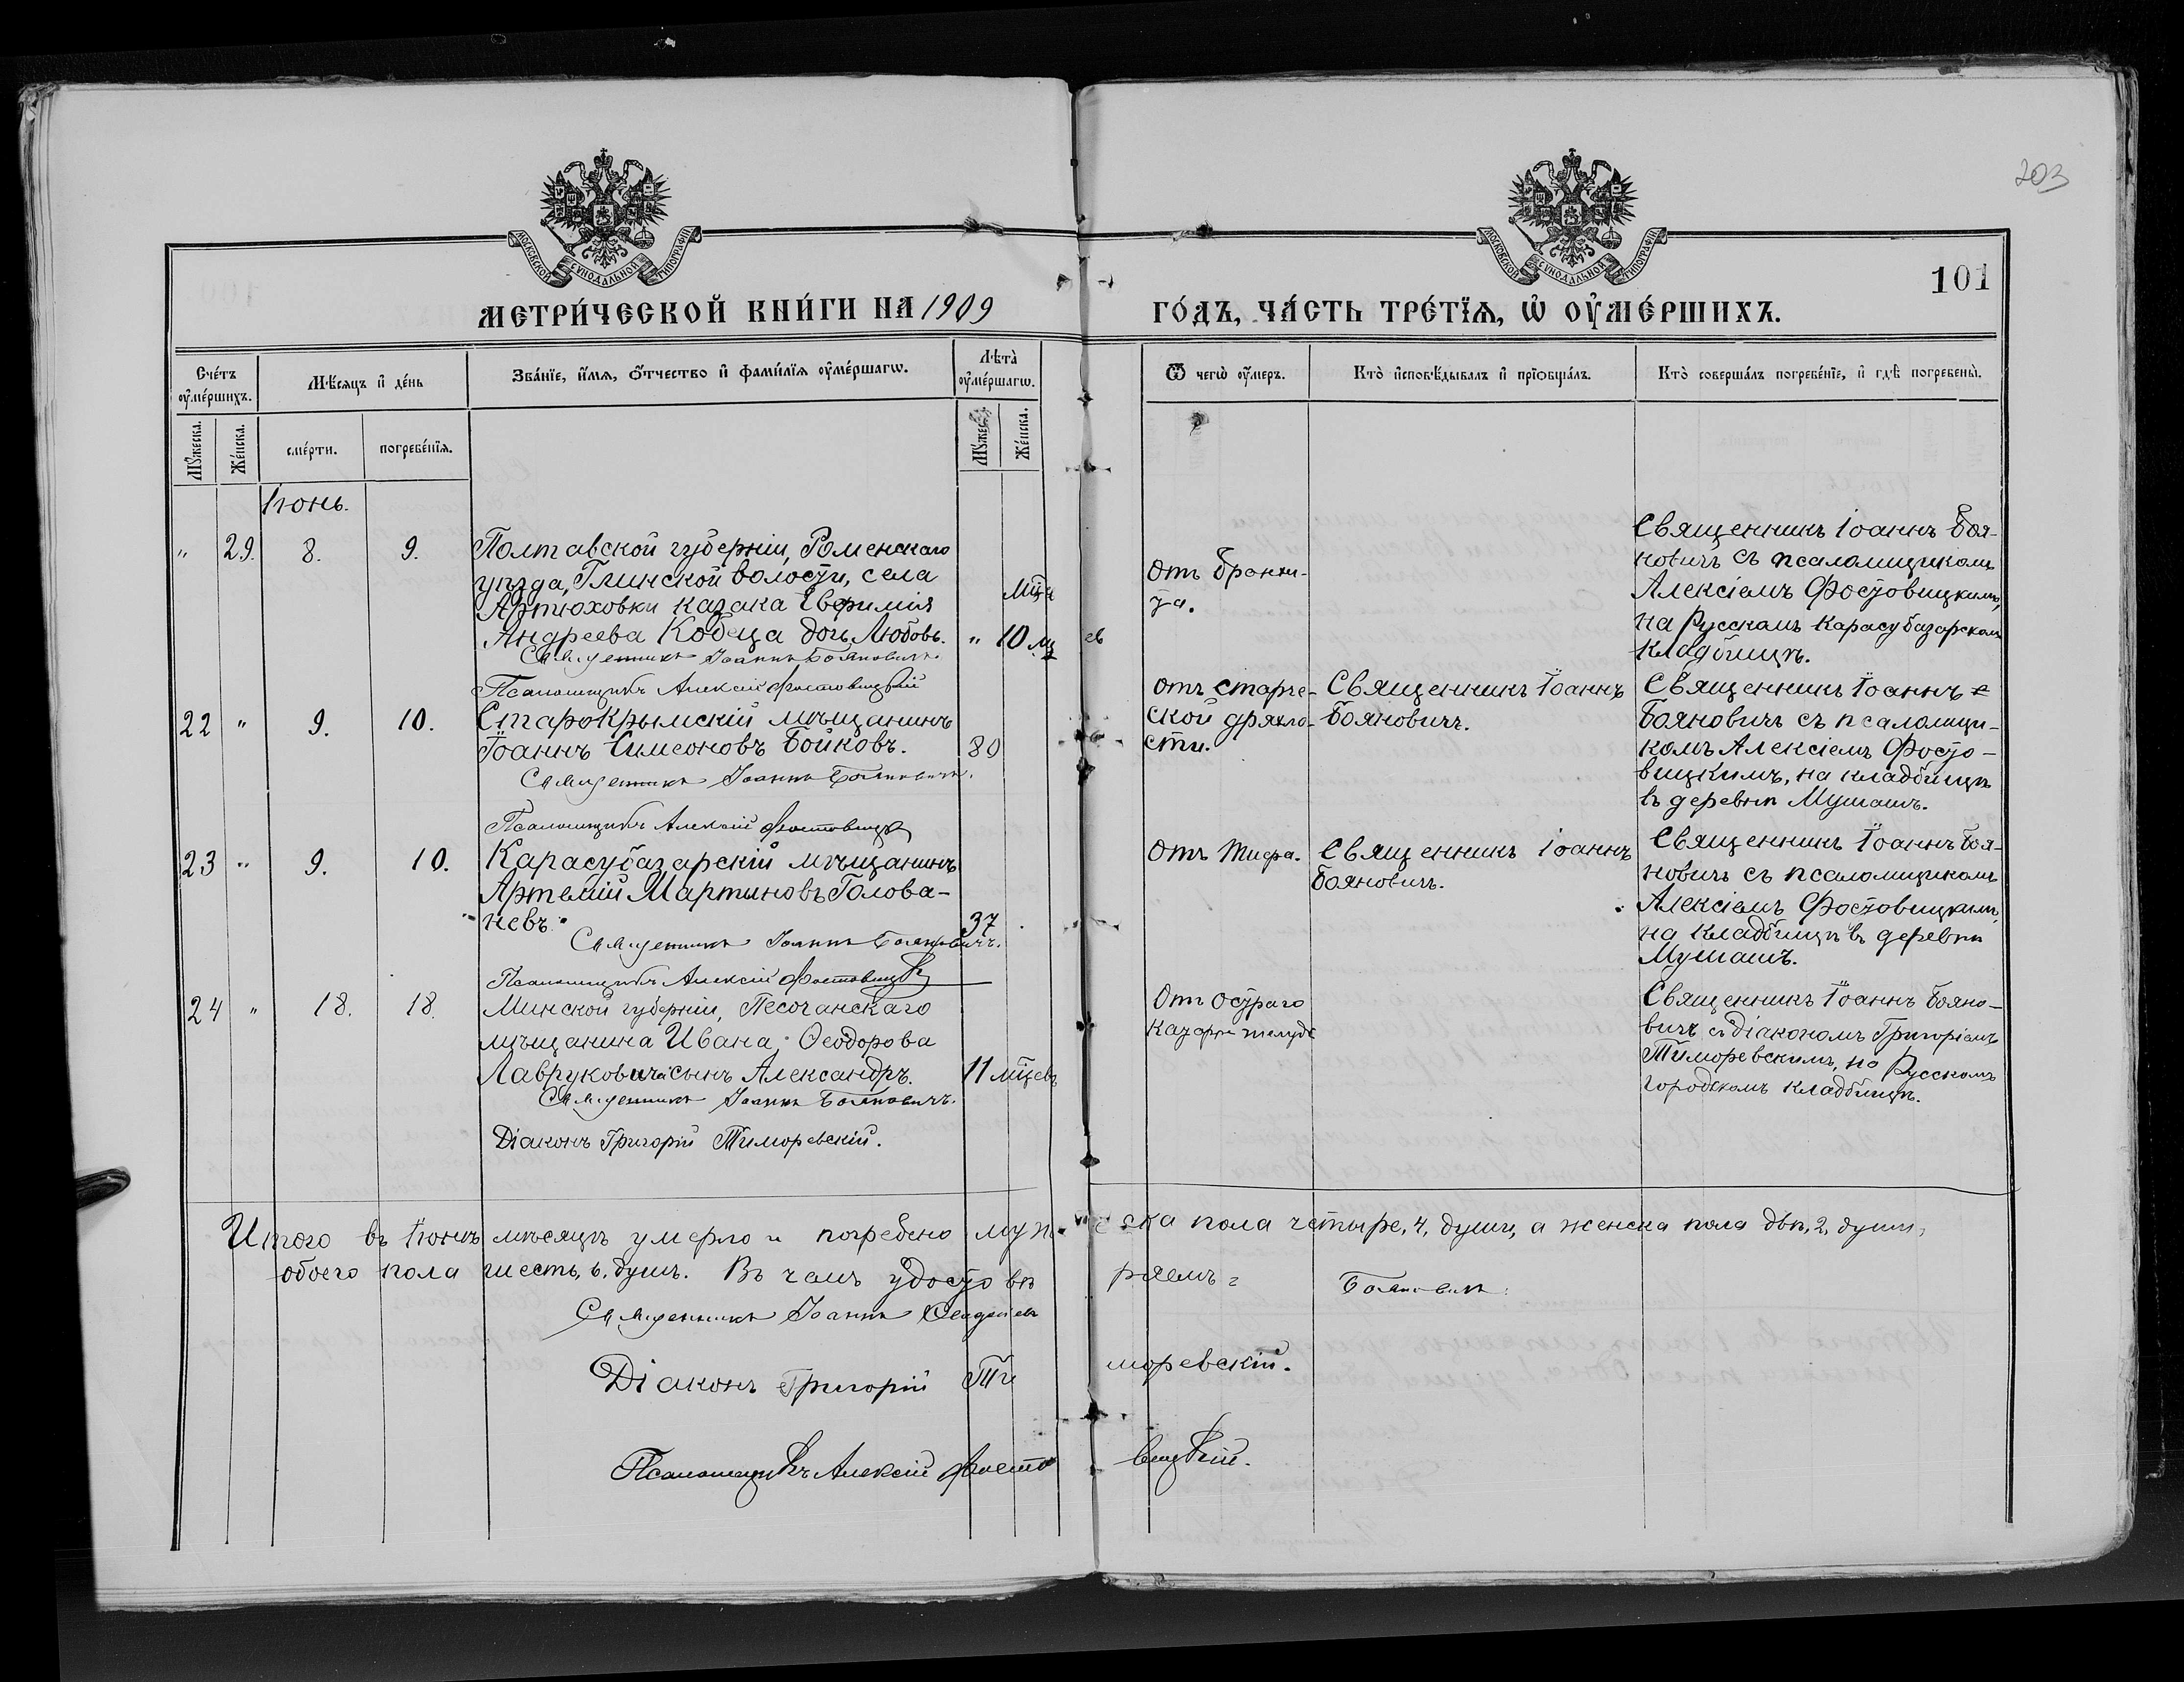 203
МОСКОВСКОЙ СѴНОДАЛЬНОЙ ТИПОГРАФІИ
МОСКОВСКОЙ СѴНОДАЛЬНОЙ ТИПОГРАФІИ
101
МЕТРИ́ЧЕСКОЙ КНИ́ГИ НА 1909 ГО́ДЪ, ЧА́СТЬ ТРЕ́ТІѦ, Ѡ ОУ҆МЕ́РШИХЪ.
Сче́тъ оу҆ме́ршихъ.
Мѣ́сяцъ и҆ де́нь
Зва́нїе, и҆́мѧ, ѻ҆́тчество и҆ фами́лїѧ оу҆ме́ршагѡ.
Лѣта̀ оу҆ме́ршагѡ.
Ѿ чегѡ̀ оу҆́меръ.
Кто̀ и҆сповѣ́дывалъ и҆ прїѻбща́лъ.
Кто̀ соверша́лъ погребе́нїе, и҆ гдѣ̀ погребены̀.
Мꙋ́жеска.
Же́нска.
сме́рти.
погребе́нїѧ.
Мꙋ́жеска.
Же́нска.
Іюнь.
" 29. 8. 9.
Полтавской губерніи, Роменскаго
уѣзда, Глинской волости, села
Артюховки казака Евфимія
Андреева Кобеца дочь Любовь.
Священникъ Іоаннъ Бояновичъ.
Псаломщикъ Алексій Фостовицкій
" 10 мцевъ
Отъ бронхи-
та.
Священникъ Іоаннъ Боя-
новичъ съ псаломщикомъ
Алексіемъ Фостовицкимъ,
на Русскомъ Карасубазарскомъ
кладбищѣ.
22 " 9. 10.
Старокрымскій мѣщанинъ
Іоаннъ Симеоновъ Бойковъ.
Священникъ Іоаннъ Бояновичъ.
Псаломщикъ Алексій Фостовицкій
80
отъ старче-
ской дряхло-
сти.
Священникъ Іоаннъ
Бояновичъ.
Священникъ Іоаннъ
Бояновичъ съ псаломщи-
комъ Алексіемъ Фосто-
вицкимъ, на кладбищѣ
въ деревнѣ Мушашъ.
23 " 9. 10.
Карасубазарскій мѣщанинъ
Артемій Мартыновъ Голова-
невъ.
Священникъ Іоаннъ Бояновичъ.
Псаломщикъ Алексій Фостовицкій
37
Отъ тифа.
Священникъ Іоаннъ
Бояновичъ.
Священникъ Іоаннъ Боя-
новичъ съ псаломщикомъ
Алексіемъ Фостовицкимъ,
на кладбищѣ въ деревнѣ
Мушашъ.
24 " 18. 18.
Минской губерніи, Песочанскаго
мѣщанина Ивана Ѳеодорова
Лавруковича сынъ Александръ.
Священникъ Іоаннъ Бояновичъ.
Діаконъ Григорій Тиморевскій.
11 мцевъ
Отъ остраго
катарра желудк
Священникъ Іоаннъ Бояно-
вичъ съ діакономъ Григоріемъ
Тиморевскимъ, на Русскомъ
городскомъ кладбищѣ.
Итого въ Іюнѣ мѣсяцѣ умерло и погребено мужеска пола четыре, 4, души, а женска пола двѣ, 2, души,
обоего пола шесть, 6, душъ. Въ чемъ удостовѣряемъ:
Священникъ Іоаннъ Бояновичъ.
Діаконъ Григорій Тиморевскій.
Псаломщикъ Алексій Фостовицкій.